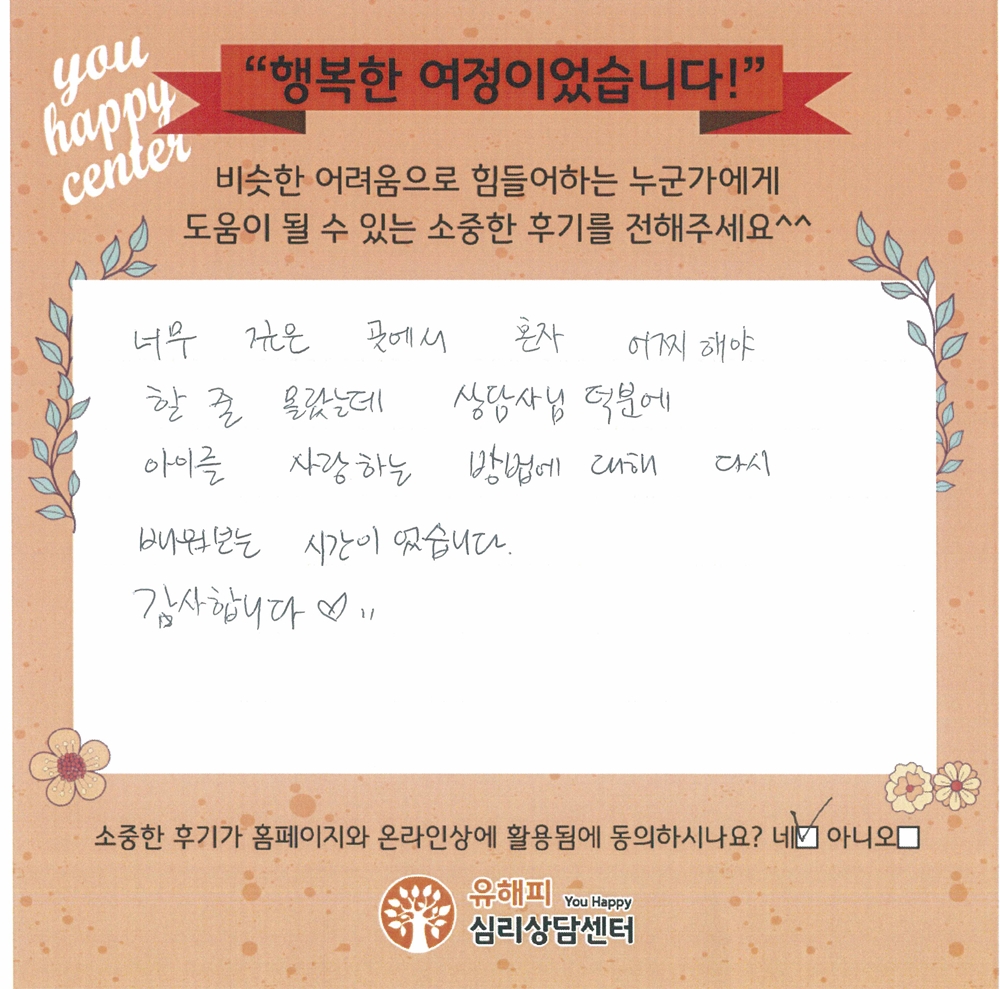 you
happy
center
“행복한 여정이었습니다!”
비슷한 어려움으로 힘들어하는 누군가에게
도움이 될 수 있는 소중한 후기를 전해주세요^^
너무 곳에서 혼자 어찌 해야
할 줄 몰랐는데 상담사님 덕분에
아이를 사랑하는 방법에 대해 다시
배워보는 시간이 였습니다.
감사합니다 ♡
소중한 후기가 홈페이지와 온라인상에 활용됨에 동의하시나요? 네 아니오
유해피 You Happy
심리상담센터